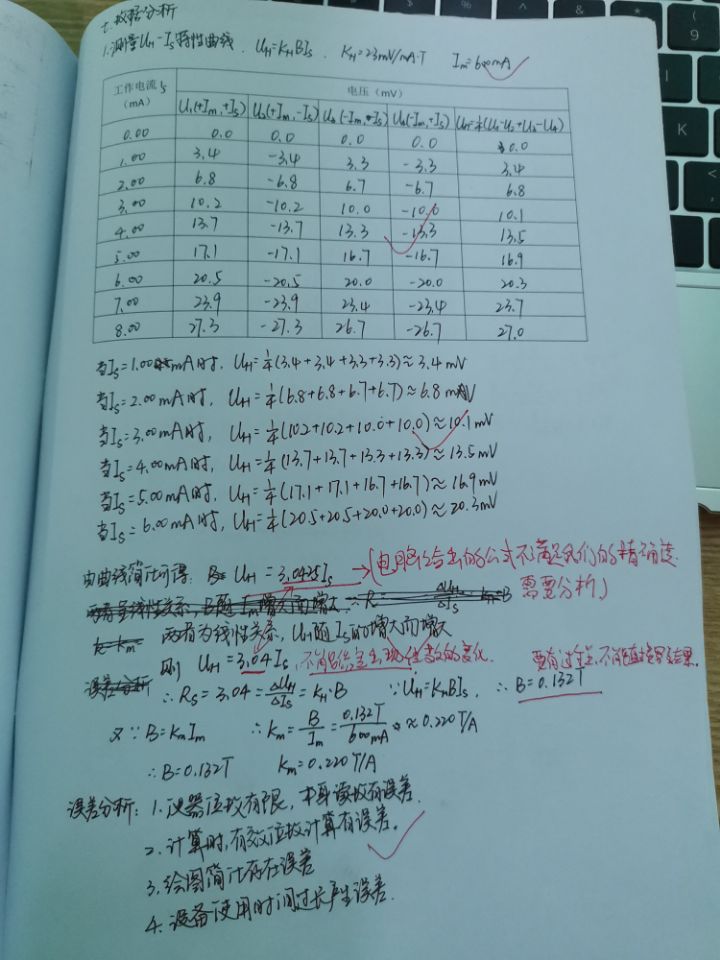 七.数据分析
1.测量UH-IS特性曲线. UH=KHBIS. KH=23mV/mA·T Im=600mA
工作电流IS(mA) 电压(mV)
U1(+Im,+IS) U2(+Im,-IS) U3(-Im,-IS) U4(-Im,+IS) UH=¼(U1-U2+U3-U4)
0.00 0.0 0.0 0.0 0.0 0.0
1.00 3.4 -3.4 3.3 -3.3 3.4
2.00 6.8 -6.8 6.7 -6.7 6.8
3.00 10.2 -10.2 10.0 -10.0 10.1
4.00 13.7 -13.7 13.3 -13.3 13.5
5.00 17.1 -17.1 16.7 -16.7 16.9
6.00 20.5 -20.5 20.0 -20.0 20.3
7.00 23.9 -23.9 23.4 -23.4 23.7
8.00 27.3 -27.3 26.7 -26.7 27.0
当IS=1.00mA时, UH=¼(3.4+3.4+3.3+3.3)≈3.4mV
当IS=2.00mA时, UH=¼(6.8+6.8+6.7+6.7)≈6.8mV
当IS=3.00mA时, UH=¼(10.2+10.2+10.0+10.0)≈10.1mV
当IS=4.00mA时, UH=¼(13.7+13.7+13.3+13.3)≈13.5mV
当IS=5.00mA时, UH=¼(17.1+17.1+16.7+16.7)≈16.9mV
当IS=6.00mA时, UH=¼(20.5+20.5+20.0+20.0)≈20.3mV
由曲线简计可得: UH=3.0435IS →(电脑给出的公式不满足我们的精确度.
需要分析)
两者为线性关系, UH随IS的增大而增大
则 UH=3.04IS, 要有过程,不能直接写结果.
误差分析 ∴RS=3.04=ΔUH/ΔIS=KH·B ∵UH=KHBIS, ∴B=0.132T
又∵B=KmIm ∴Km=B/Im=0.132T/600mA≈0.220T/A
∴B=0.132T Km=0.220T/A
误差分析: 1.仪器位数有限, 本身读数有误差.
2.计算时,有效位数计算有误差.
3.绘图简计存在误差
4.设备使用时间过长产生误差.